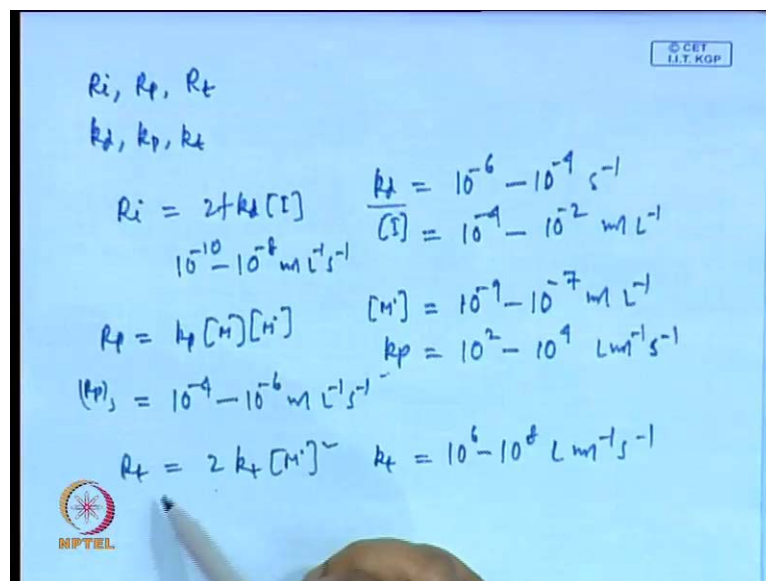 © CET
I.I.T. KGP
Ri, Rp, Rt
kd, kp, kt
Ri = 2f kd [I]
kd = 10⁻⁶ – 10⁻⁴ s⁻¹
[I] = 10⁻⁴ – 10⁻² mol L⁻¹
10⁻¹⁰ – 10⁻⁸ mol L⁻¹ s⁻¹
[M·] = 10⁻⁹ – 10⁻⁷ mol L⁻¹
Rp = kp [M] [M·]
kp = 10² – 10⁴ L mol⁻¹ s⁻¹
(Rp)s = 10⁻⁴ – 10⁻⁶ mol L⁻¹ s⁻¹
Rt = 2 kt [M·]² kt = 10⁶ – 10⁸ L mol⁻¹ s⁻¹
NPTEL